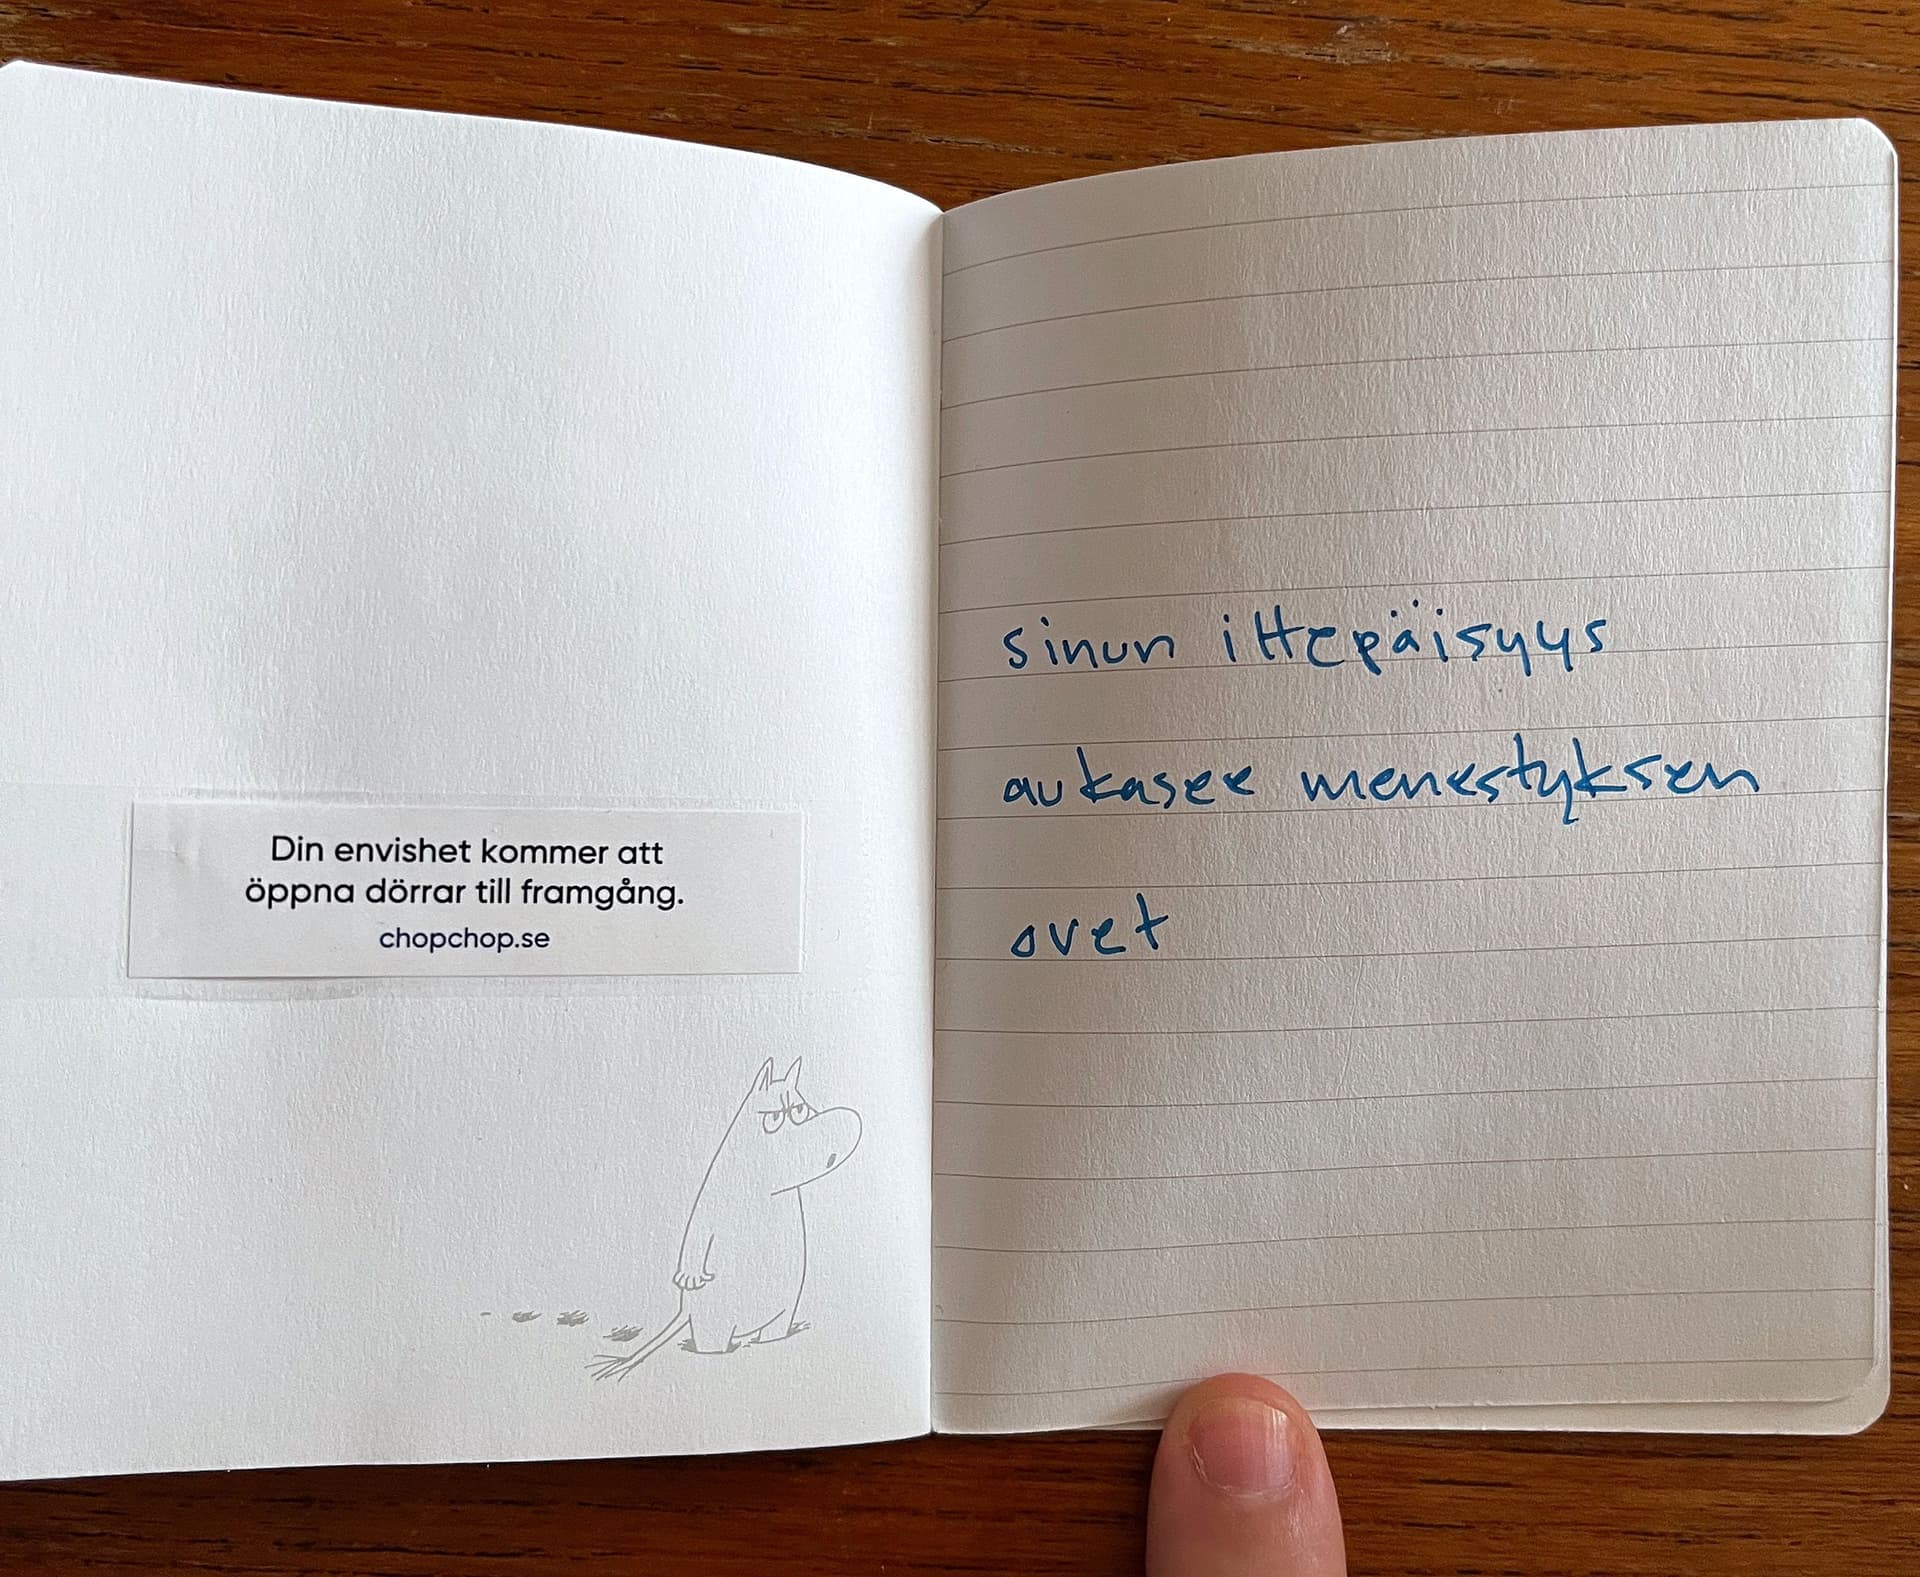 Din envishet kommer att
öppna dörrar till framgång.
chopchop.se
sinun ittepäisyys
aukasee menestyksen
ovet